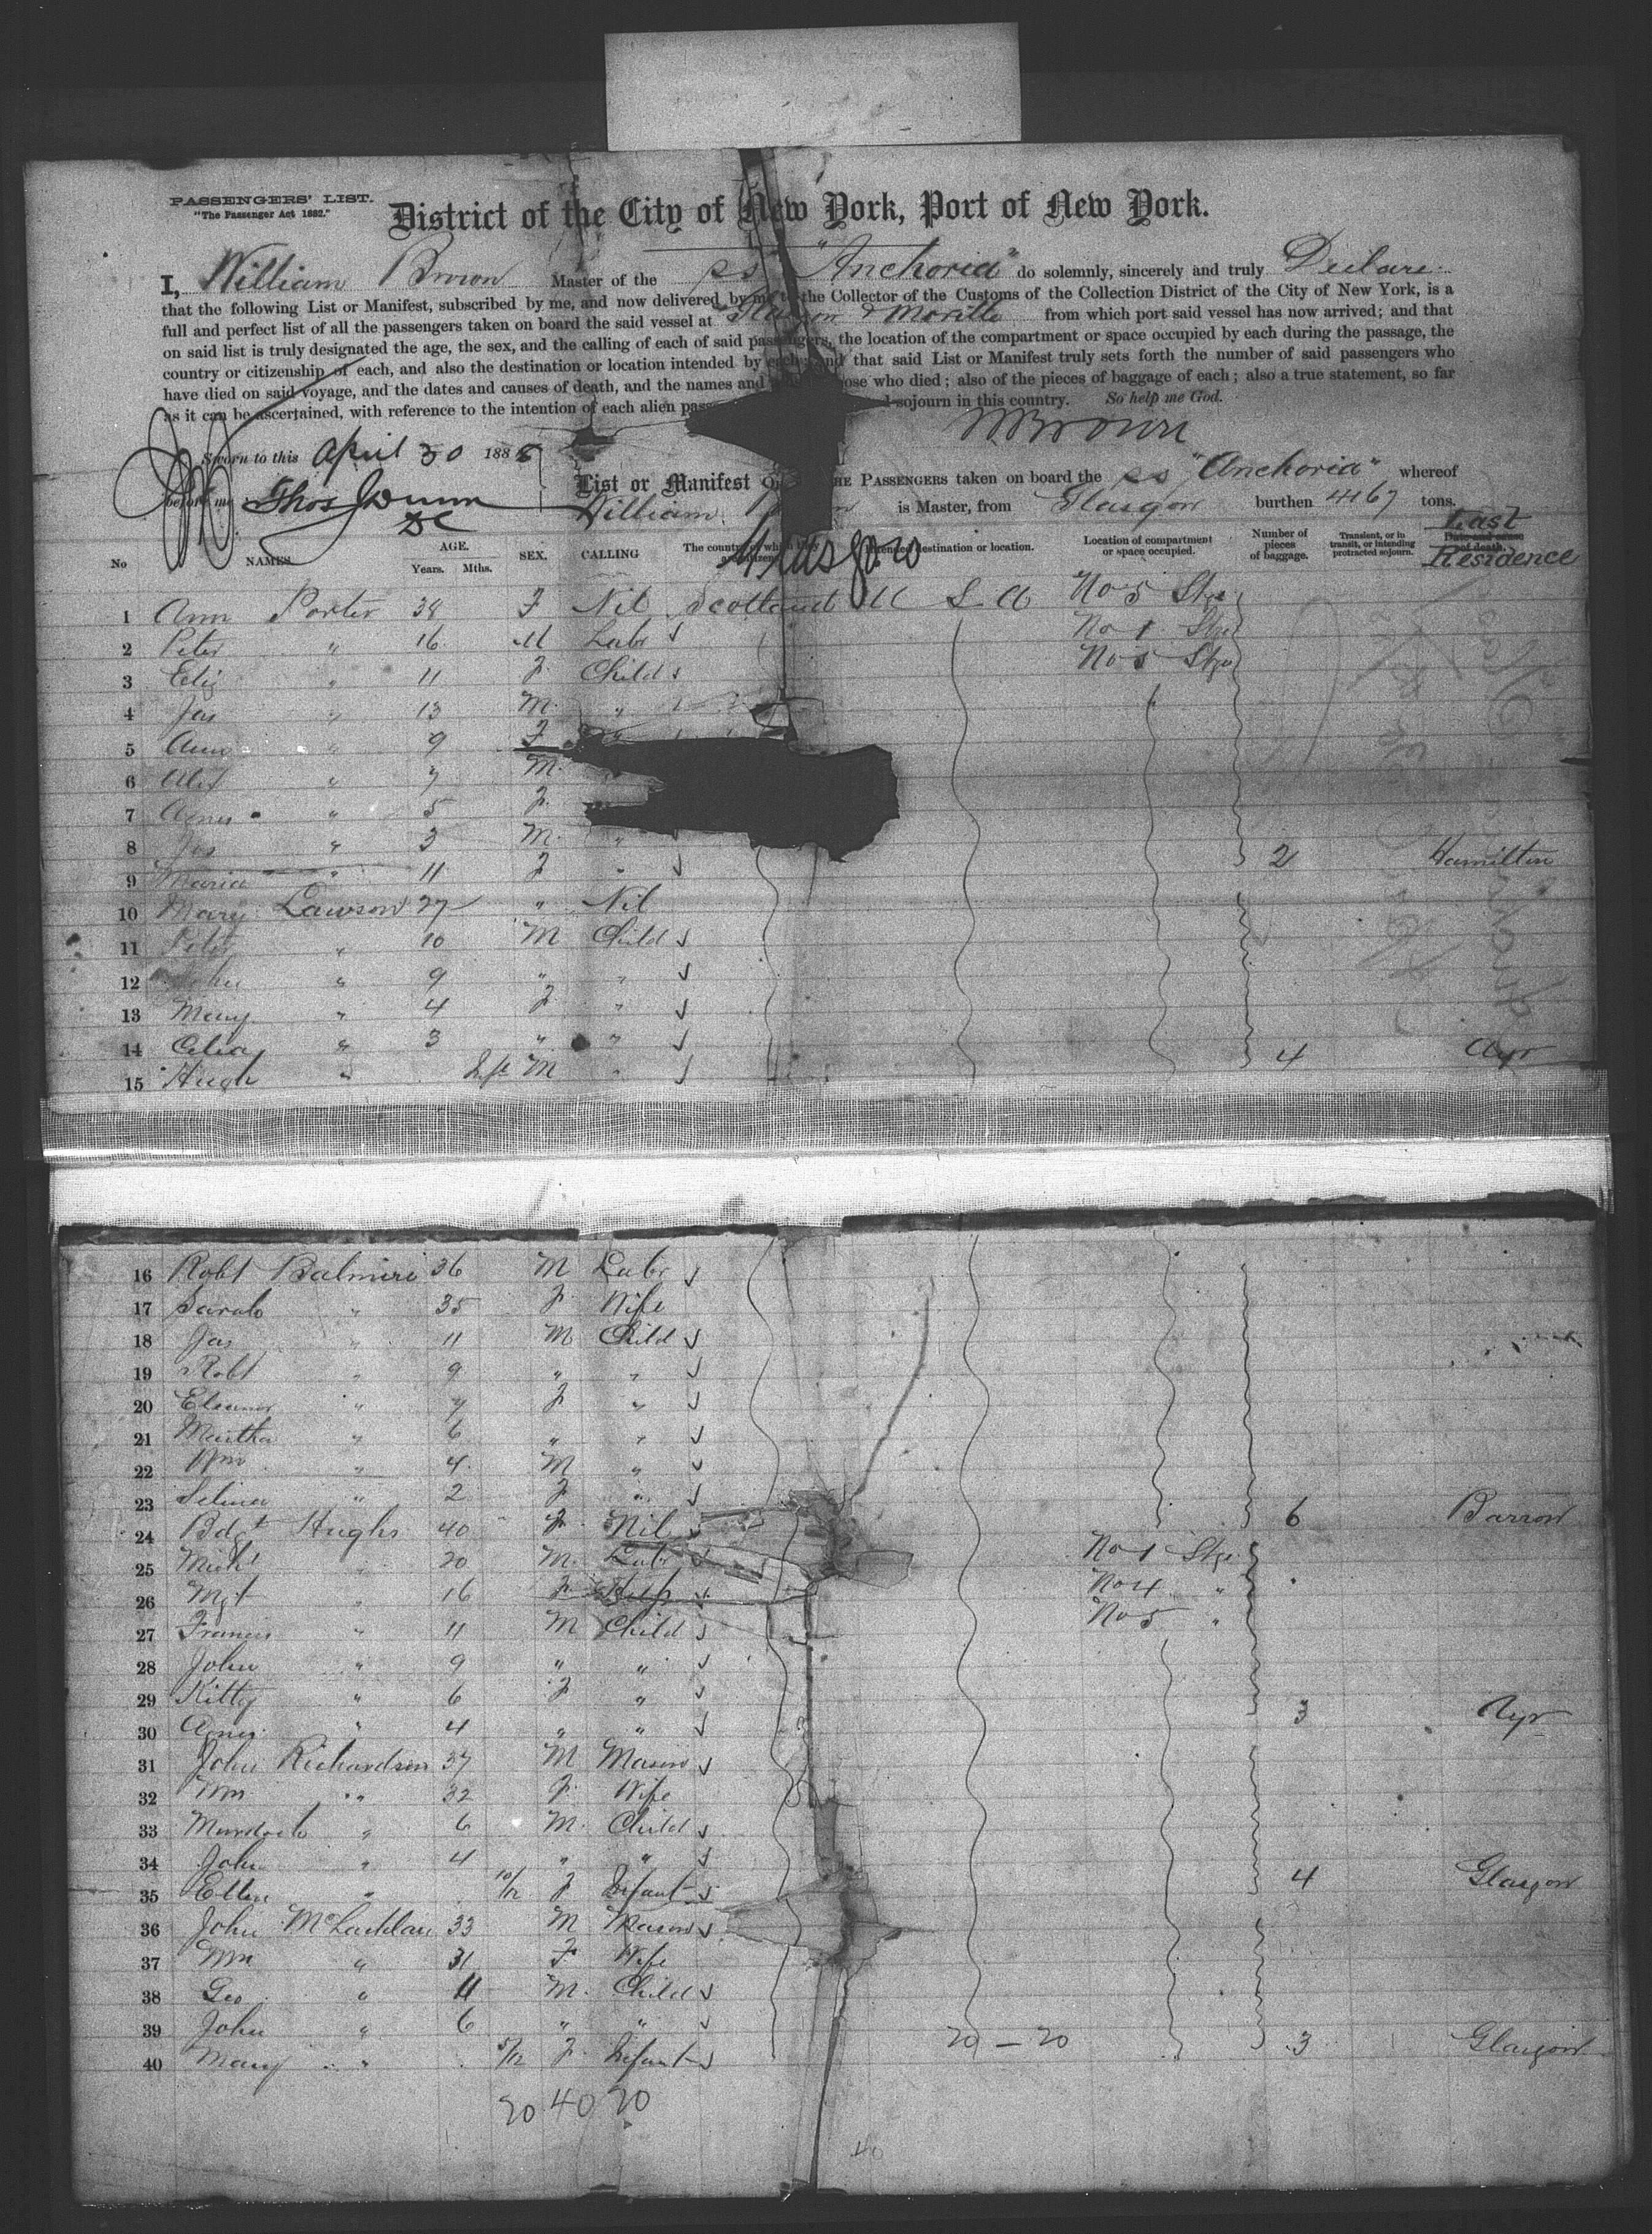 PASSENGERS' LIST.
"The Passenger Act 1882."
District of the City of New York, Port of New York.
I, William Brown Master of the ss "Anchoria" do solemnly, sincerely and truly Declare
that the following List or Manifest, subscribed by me, and now delivered by me to the Collector of the Customs of the Collection District of the City of New York, is a
full and perfect list of all the passengers taken on board the said vessel at Glasgow & Moville from which port said vessel has now arrived; and that
on said list is truly designated the age, the sex, and the calling of each of said passengers, the location of the compartment or space occupied by each during the passage, the
country or citizenship of each, and also the destination or location intended by each and that said List or Manifest truly sets forth the number of said passengers who
have died on said voyage, and the dates and causes of death, and the names and ose who died; also of the pieces of baggage of each; also a true statement, so far
as it can be ascertained, with reference to the intention of each alien pass sojourn in this country. So help me God.
WBrown
Sworn to this April 30 1886
before me Thos J Dunn
DC
List or Manifest OF THE PASSENGERS taken on board the ss "Anchoria" whereof
William is Master, from Glasgow burthen 4167 tons.
No NAMES. AGE. Years. Mths. SEX. CALLING The country of which citizens. Intended destination or location. Location of compartment or space occupied. Number of pieces of baggage. Transient, or in transit, or intending protracted sojourn. Date and cause of death. Last Residence
1 Ann Porter 38 F Nil Scotland U S A No 5 Stge
2 Peter " 16 M Labr No 1 Stge
3 Eliz " 11 F Child No 5 Stge
4 Jas " 13 M "
5 Ann " 9 F
6 Alex " 7 M
7 Agnes " 5 F
8 Jos " 3 M "
9 Maria " 11 F " 2 Hamilton
10 Mary Lawson 27 " Nil
11 Peter " 10 M Child
12 John " 9 " "
13 Mary " 4 F "
14 Celia " 3 " "
15 Hugh " Inft M " 4 Ayr
16 Robt Balmire 36 M Labr
17 Sarah " 35 F Wife
18 Jas " 11 M Child
19 Robt " 9 " "
20 Eleanor " 7 F "
21 Martha " 6 " "
22 Wm " 4 M "
23 Selina " 2 F " 6 Barrow
24 Bdgt Hughs 40 F Nil
25 Michl " 20 M Labr No 1 Stge
26 Mgt " 16 F Help No 4 "
27 Francis " 11 M Child No 5 "
28 John " 9 " "
29 Kitty " 6 F "
30 Agnes " 4 " " 3 Ayr
31 John Richardson 37 M Mason
32 Mrs " 32 F Wife
33 Murdoch " 6 M Child
34 John " 4 " "
35 Ellen " 10/12 F Infant 4 Glasgow
36 John McLachlan 33 M Mason
37 Mrs " 31 F Wife
38 Geo " 11 M Child
39 John " 6 " "
40 Mary " 5/12 F Infant 20 — 20 3 Glasgow
20 40 20
40